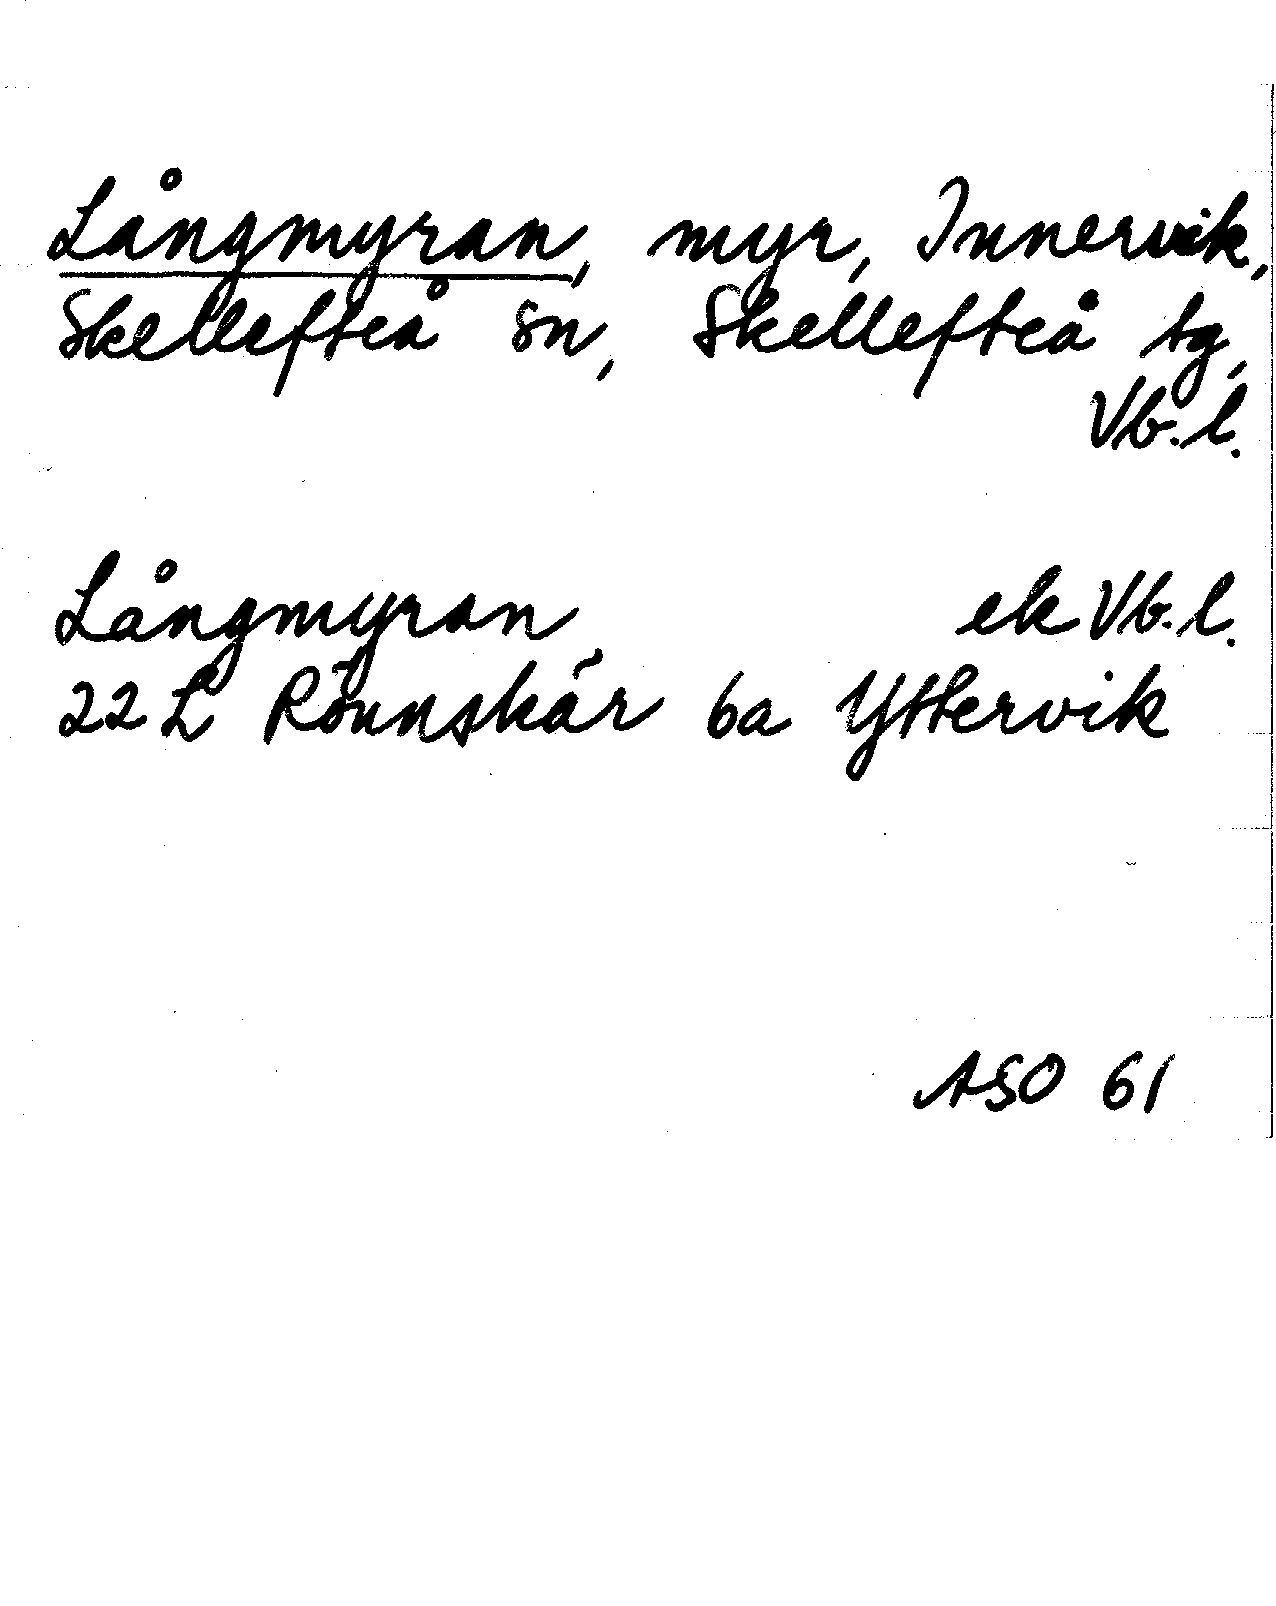 Långmyran, myr, Innervik,
Skellefteå sn, Skellefteå tg,
Vb.l.
Långmyran ek Vb.l.
22 L Rönnskär 6a Yttervik
ASO 61